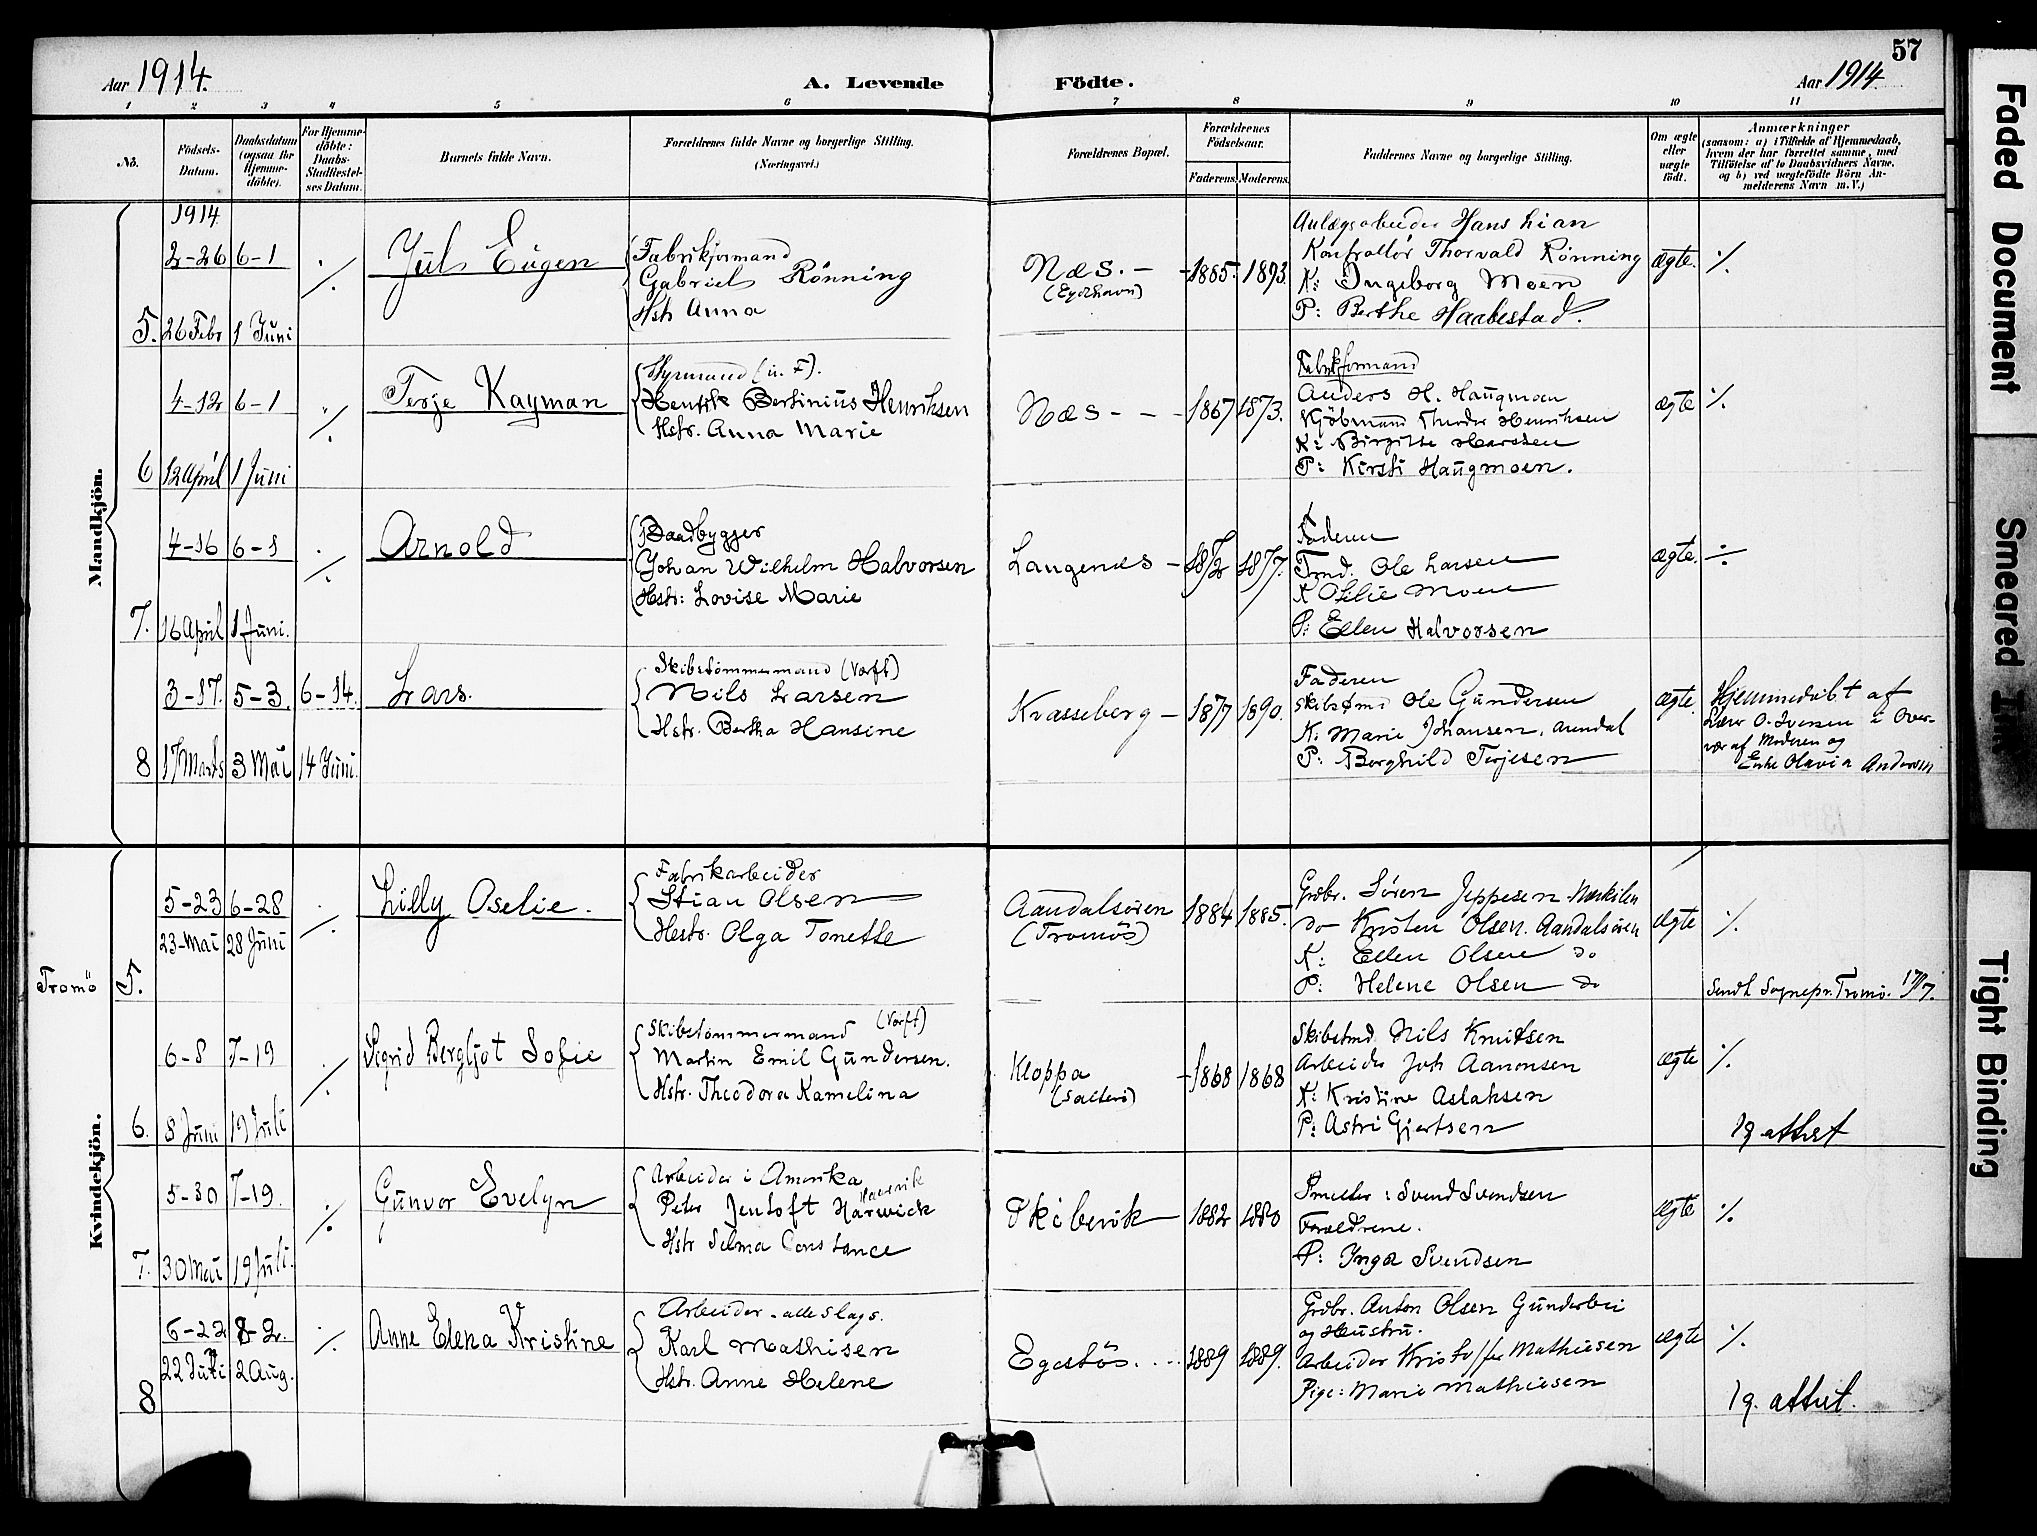 57
Aar 1914.
A. Levende Födte.
Aar 1914.
1 2 3 4 5 6 7 8 9 10 11
No.
Födsels-Datum.
Daabsdatum (ogsaa for Hjemme-döbte).
For Hjemme-döbte: Daabs-Stadfæstel-ses Datum.
Barnets fulde Navn.
Forældrenes fulde Navne og borgerlige Stilling.
(Næringsvei.)
Forældrenes Bopæl.
Forældrenes Födselsaar.
Faderens. Moderens.
Faddernes Navne og borgerlige Stilling.
Om ægte eller uægte födt.
Anmærkninger
(saasom: a) i Tilfælde af Hjemmedaab,
hvem der har forrettet samme, med
Tilföielse af to Daabsvidners Navne,
og b) ved uægtefödte Börn An-
melderens Navn m. V.)
Mandkjön.
1914
2-26 6-1 ./.
5. 26 Febr 1 Juni
Jul Eugen
Fabrikformand
Gabriel Rönning
Hstr Anna
Næs. -
(Eydehavn)
1885. 1893.
Anlægsarbeider Hans Lian
Kontrollør Thorvald Rønning
K: Ingeborg Moen
P: Berthe Haabestad.
ægte. ./.
4-12 6-1 ./.
6 12 April 1 Juni
Terje Kayman
Styrmand (u. F).
Henrik Bertinius Henriksen
Hstr. Anna Marie
Næs - -
1867 1873.
Fabrikformand
Anders H. Haugmoen
Kjöbmand Theodor Henriksen
K: Birgitte
P: Kirsti Haugmoen.
ægte ./.
4-16 6-1 ./.
7. 16 April 1 Juni.
Arnold
Baadbygger
Johan Wilhelm Halvorsen
Hstr: Lovise Marie
Langenes -
1872 1877.
Faderen
Tmd. Ole Larsen
K Otilie Moen
P: Ellen Halvorsen
ægte. ./.
3-17. 5-3. 6-14.
8 17 Marts 3 Mai 14 Juni.
Lars.
Skibstømmermand (Værft)
Nils Larsen
Hstr. Bertha Hansine
Krasseberg -
1877 1890.
Faderen
Skibstømd Ole Gundersen
K. Marie Johansen, Arendal
P: Borghild Terjesen
ægte.
Hjemmedøbt af
Lærer O. Iversen i Over-
vær af Moderen og
Enke Olavia Andersen
Kvindekjön.
Tromö
5-23 6-28 ./.
23-Mai 28 Juni
5.
Lilly Oselie.
Fabrikarbeider
Stian Olsen
Hustr. Olga Tonette
Aandalsören
(Tromös)
1884 1885.
Grdbr. Sören Jeppesen Narkilen
do Kristen Olsen. Aandalsören
K: Ellen Olsen do
P: Helene Olsen do
ægte ./.
Sendt Sognepr. Tromø. 17/7.
6-8 7-19 ./.
6. 8 Juni 19 Juli
Sigrid Bergljot Sofie
Skibstømmermand (Værft)
Martin Emil Gundersen.
Hstr. Theodora Kamelina
Kloppa
(Salterö)
1868 1868
Skibstmd Nils Knutsen
Arbeider Joh Aanonsen
K: Kristine Aslaksen
P: Astri Gjertsen
ægte ./.
19 attest
5-30 7-19. ./.
7. 30 Mai 19 Juli.
Gunvor Evelyn
Arbeider i Amerika
Peter Jentoft Harwick
Hstr Selma Constance
Skibevik
1882 1880
Smeller: Svend Svendsen
Forældrene.
P: Inga Svendsen
ægte ./.
6-22 8-2. ./.
22 Juni 2 Aug.
8
Anne Elena Kristine
Arbeider - alle slags.
Karl Mathisen
Hstr. Anne Helene
Egestös. ...
1889 1889.
Grdbr. Anton Olsen Gunderbei
og Hustru.
Arbeider Kristoffer Mathiesen
Pige: Marie Mathiesen
ægte ./.
19. attest.
Faded Document
Smeared Ink
Tight Binding